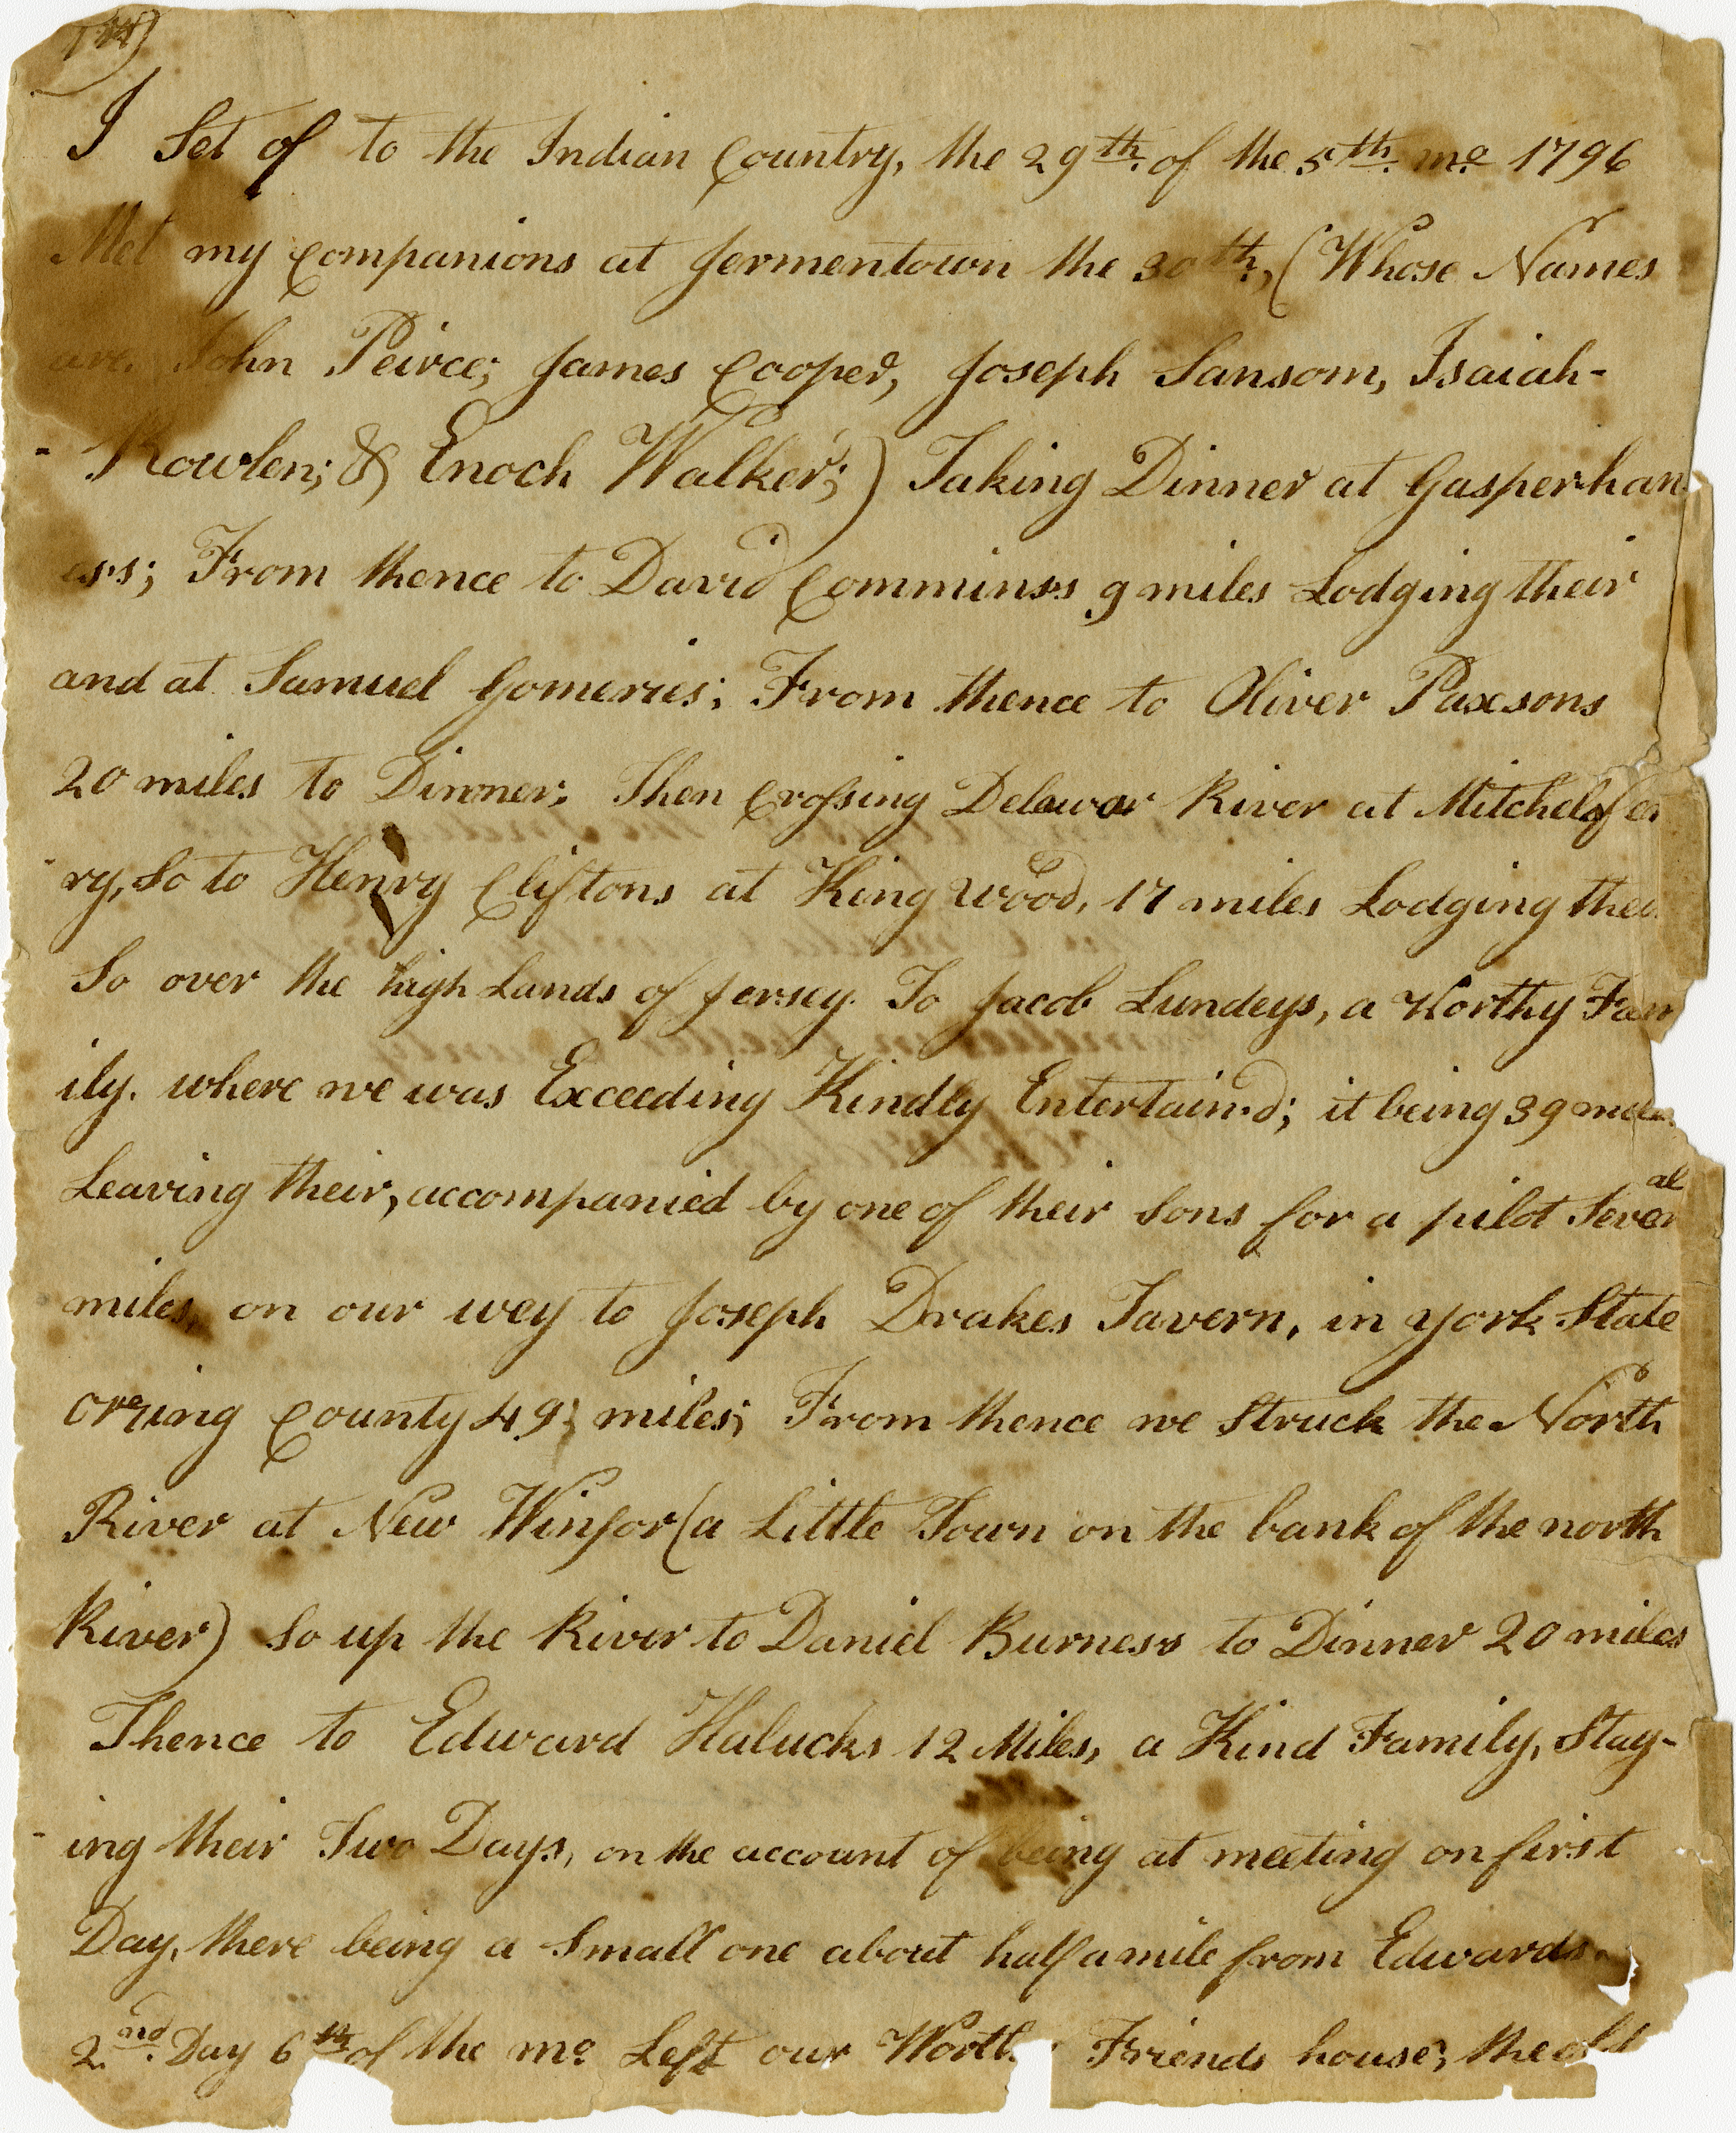 I Set of to the Indian Country, the 29th. of the 5th. mo. 1796
Met my Companions at Jermentown the 30th, (Whose Names
are. John Peirce; James Cooper, Joseph Sansom, Isaiah-
- Rowlen; & Enoch Walker;) Taking Dinner at Gasperhan
ess; From thence to David Comminss 9 miles Lodging their
and at Samuel Gomeries; From thence to Oliver Paxsons
20 miles to Dinner; Then Crossing Delawar River at Mitchels fer
ry, So to Henry Cliftons at King Wood, 17 miles Lodging their
So over the high Lands of Jersey. To Jacob Lundeys, a Worthy Fam
ily. where we was Exceeding Kindly Entertain.d; it being 39 miles
Leaving their, accompanied by one of their Sons for a pilot Several
miles, on our wey to Joseph Drakes Tavern, in york State
Orring County 49 miles; From thence we Struck the North
River at New Winsor (a Little Town on the bank of the north
River) So up the River to Daniel Burness to Dinner 20 miles
Thence to Edward Halucks 12 Miles, a Kind Family, Stay-
- ing their Two Days, on the account of being at meeting on first
Day, there being a Small one about half a mile from Edwards.
2.nd. Day 6th of the mo. Left our Friends house; the old